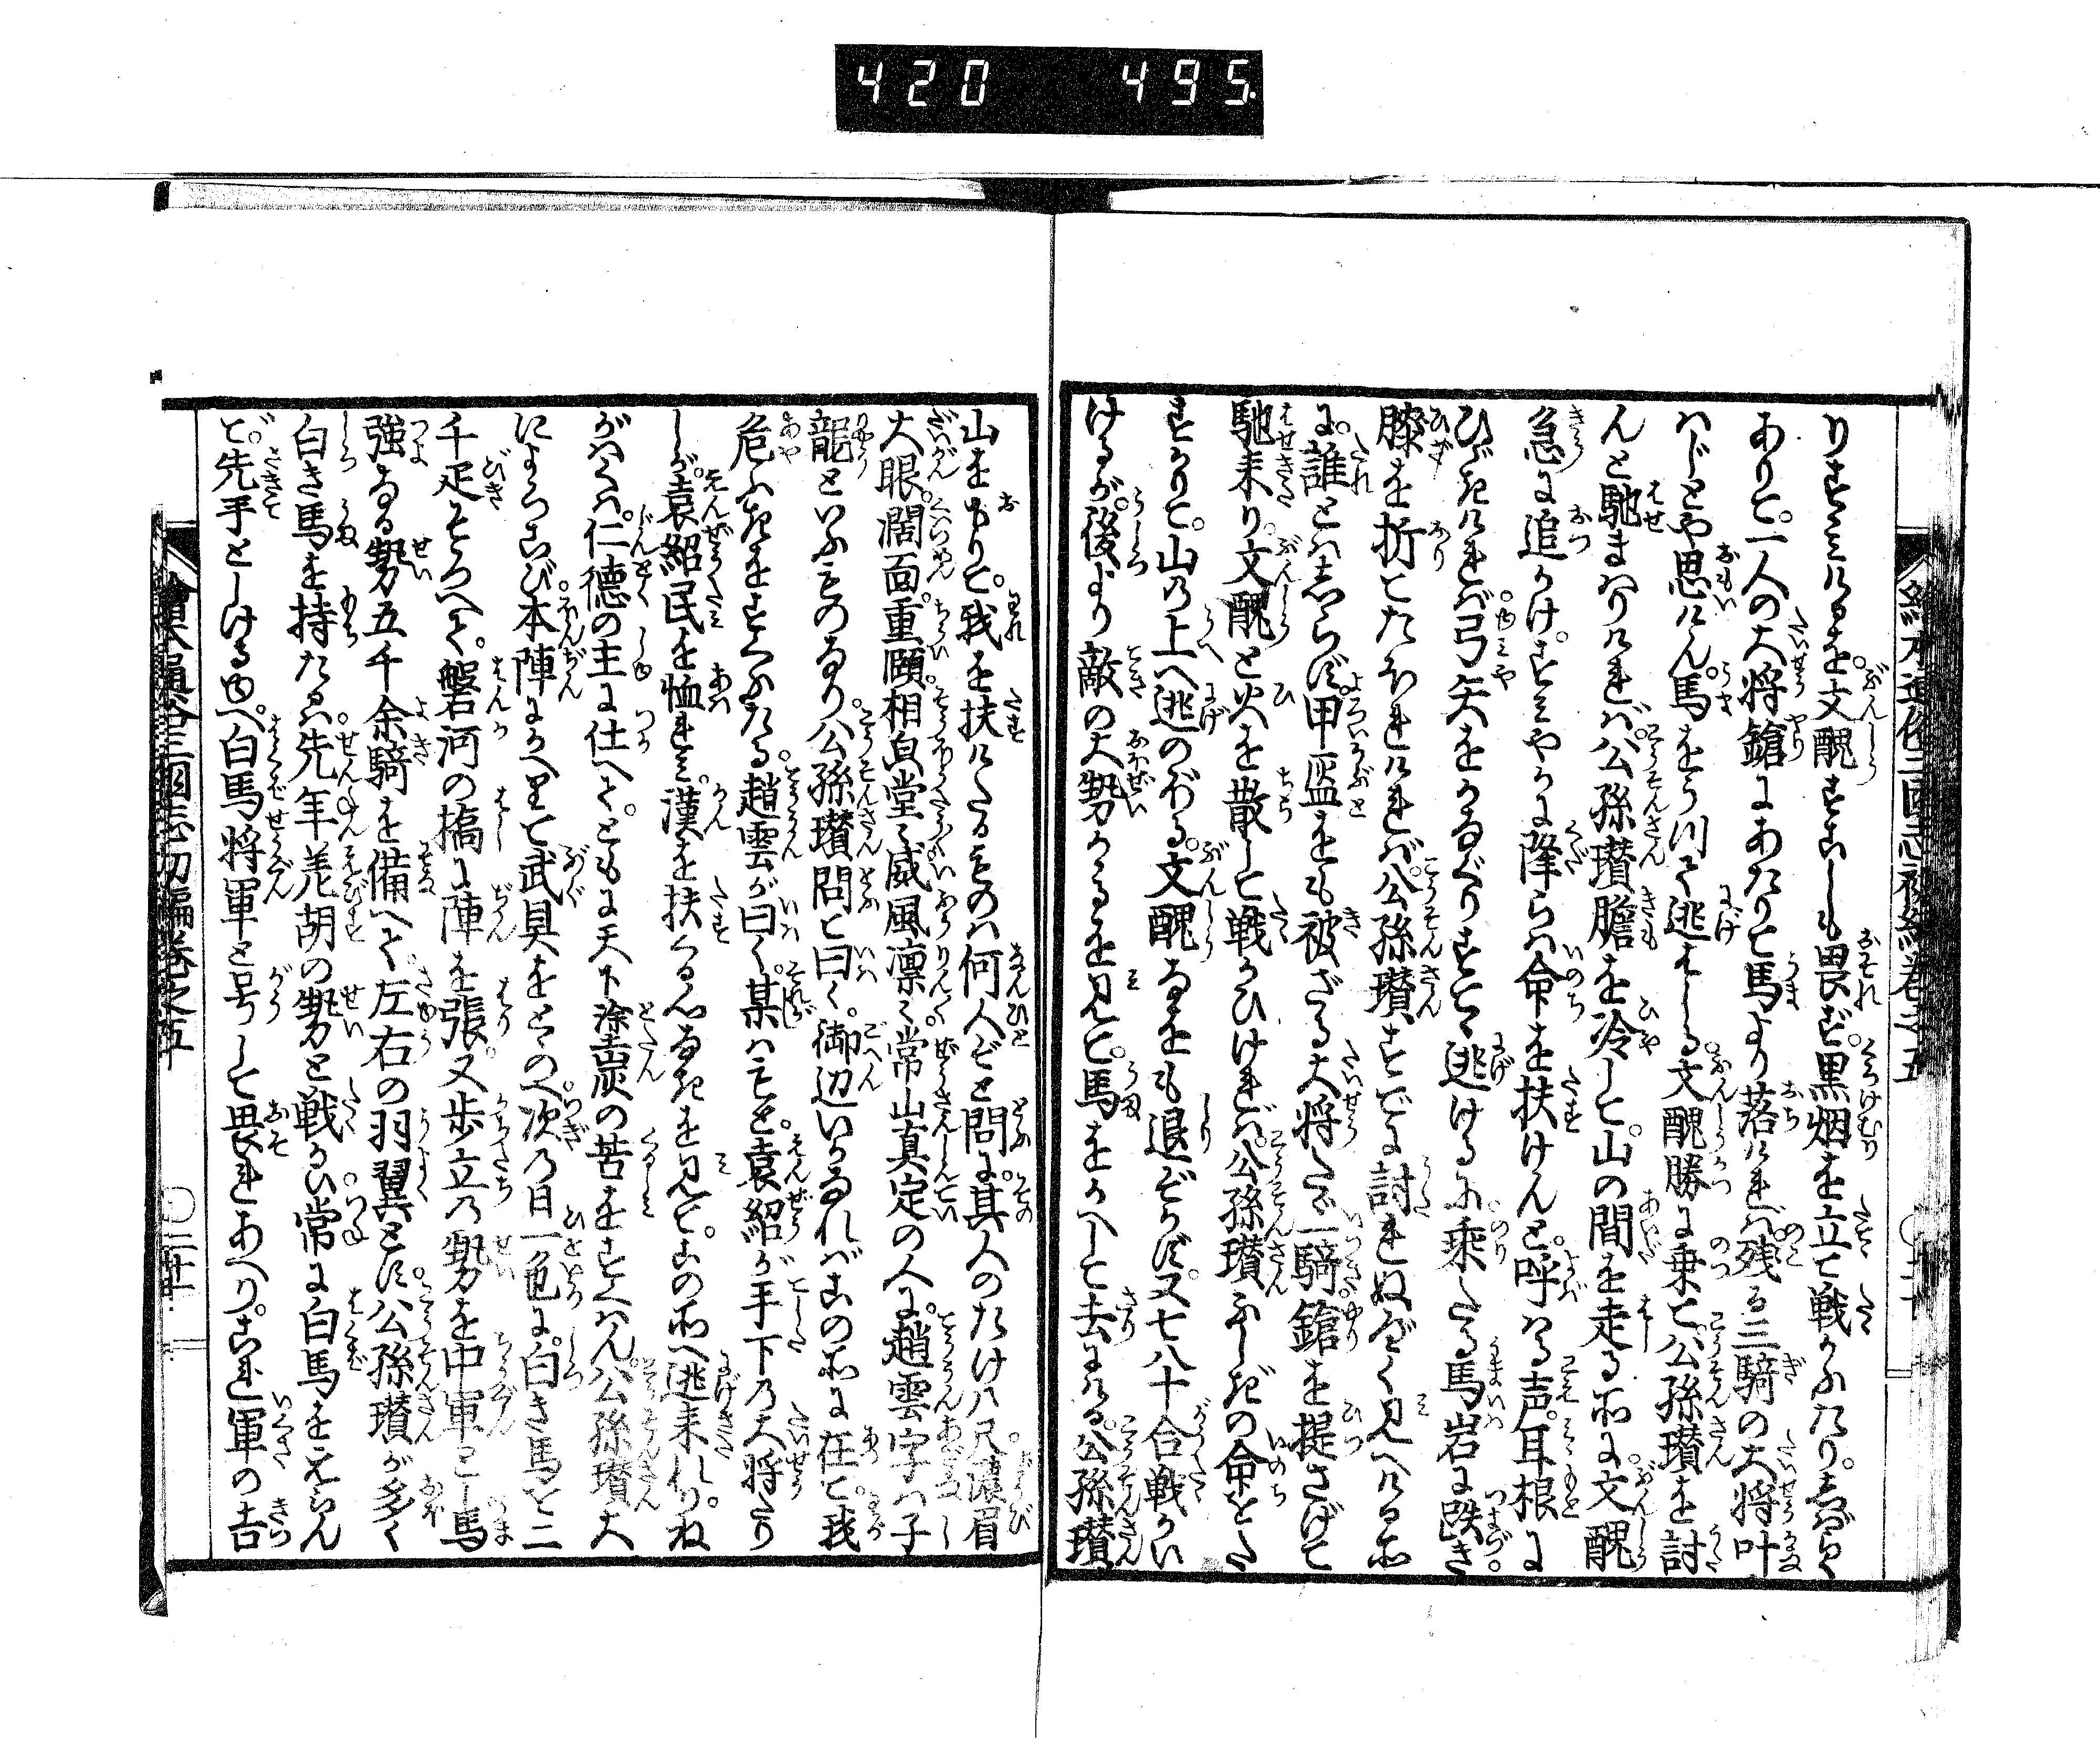 420 495
繪本通俗三國志初編卷之五
りすゝみけるを。文醜すこしも畏ず。黒烟を立て戦かふたり。しばらく
ありて。一人の大将鎗にあたりて馬より落ければ。残る三騎の大将叶
はじとや思けん。馬をかへして逃はしる。文醜勝に乗て。公孫瓚を討
んと馳まはりければ。公孫瓚膽を冷して。山の間を走る所に。文醜
急に追かけ。すみやかに降らば命を扶けんと。呼はる声。耳根に
ひゞきければ。弓矢をかなぐりすてゝ逃けるに。乗たる馬岩に跌き。
膝を折てたふれければ。公孫瓚すでに討れぬべく見へける所
に。誰とはしらず。甲盔をも被ざる大将たゞ一騎。鎗を提さげて
馳来り。文醜と火を散して戦かひければ。公孫瓚ふしぎの命をた
すかりて。山の上へ逃のぼる。文醜なをも退ぞかず。又七八十合戦かい
けるが。後より敵の大勢かゝるを見て。馬をかへして去にける。公孫瓚
山をおりて。我を扶けたるものは何人ぞと問に。其人のたけ八尺。濃眉
大眼。濶面。重頤。相皃堂々威風凛々。常山真定の人に。趙雲字は子
龍といふものなり。公孫瓚問て曰く。御辺いかなればこの所に在て。我
危ふきをすくふたる。趙雲が曰く。某はもと。袁紹が手下の大将たり
しが。袁紹民を恤れみ。漢を扶くる心なきを見て。この所へ逃来れり。ね
がはくは。仁德の主に仕へて。ともに天下塗炭の苦をすくはん。公孫瓚大
によろこび。本陣にかへりて武具をとゝのへ。次の日一色に。白き馬を二
千疋そろへて。磐河の橋に陣を張。又歩立の勢を中軍とし。馬
強なる勢五千余騎を備へて。左右の羽翼とす。公孫瓚が多く
白き馬を持たるは。先年羌胡の勢と戦かひ。常に白馬をえらん
で。先手としけるゆへ。白馬将軍と号して畏れあへり。これ軍の吉
繪本通俗三國志初編卷之五 〇二十一